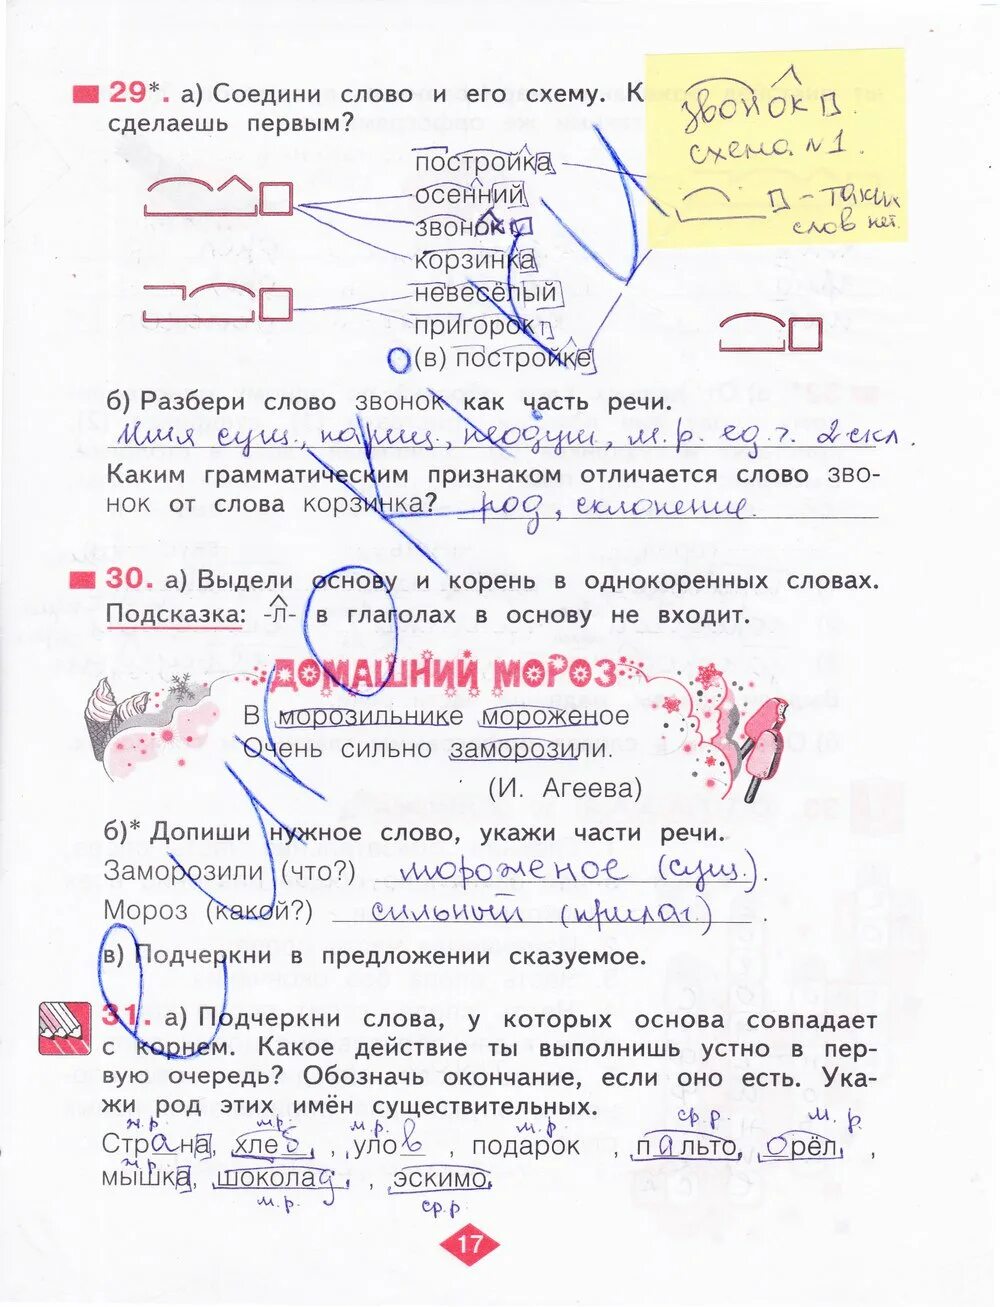 29*. а) Соедини слово и его схему. К
сделаешь первым?
звонок
схема №1.
- таких
слов нет.
постройка
осенний
звонок
корзинка
невесёлый
пригорок
(в) постройке
б) Разбери слово звонок как часть речи.
Имя сущ., нариц., неодуш, м.р. ед.ч. 2 скл.
Каким грамматическим признаком отличается слово зво-
нок от слова корзинка? род, склонение.
30. а) Выдели основу и корень в однокоренных словах.
Подсказка: -л- в глаголах в основу не входит.
ДОМАШНИЙ МОРОЗ
В морозильнике мороженое
Очень сильно заморозили.
(И. Агеева)
б)* Допиши нужное слово, укажи части речи.
Заморозили (что?) мороженое (сущ.).
Мороз (какой?) сильный (прилаг.).
в) Подчеркни в предложении сказуемое.
31. а) Подчеркни слова, у которых основа совпадает
с корнем. Какое действие ты выполнишь устно в пер-
вую очередь? Обозначь окончание, если оно есть. Ука-
жи род этих имён существительных.
ж.р. м.р. м.р. м.р. ср.р. м.р.
Страна, хлеб, улов, подарок, пальто, орёл,
ж.р.
мышка, шоколад, эскимо.
м.р. ср.р
17
е уроки ти